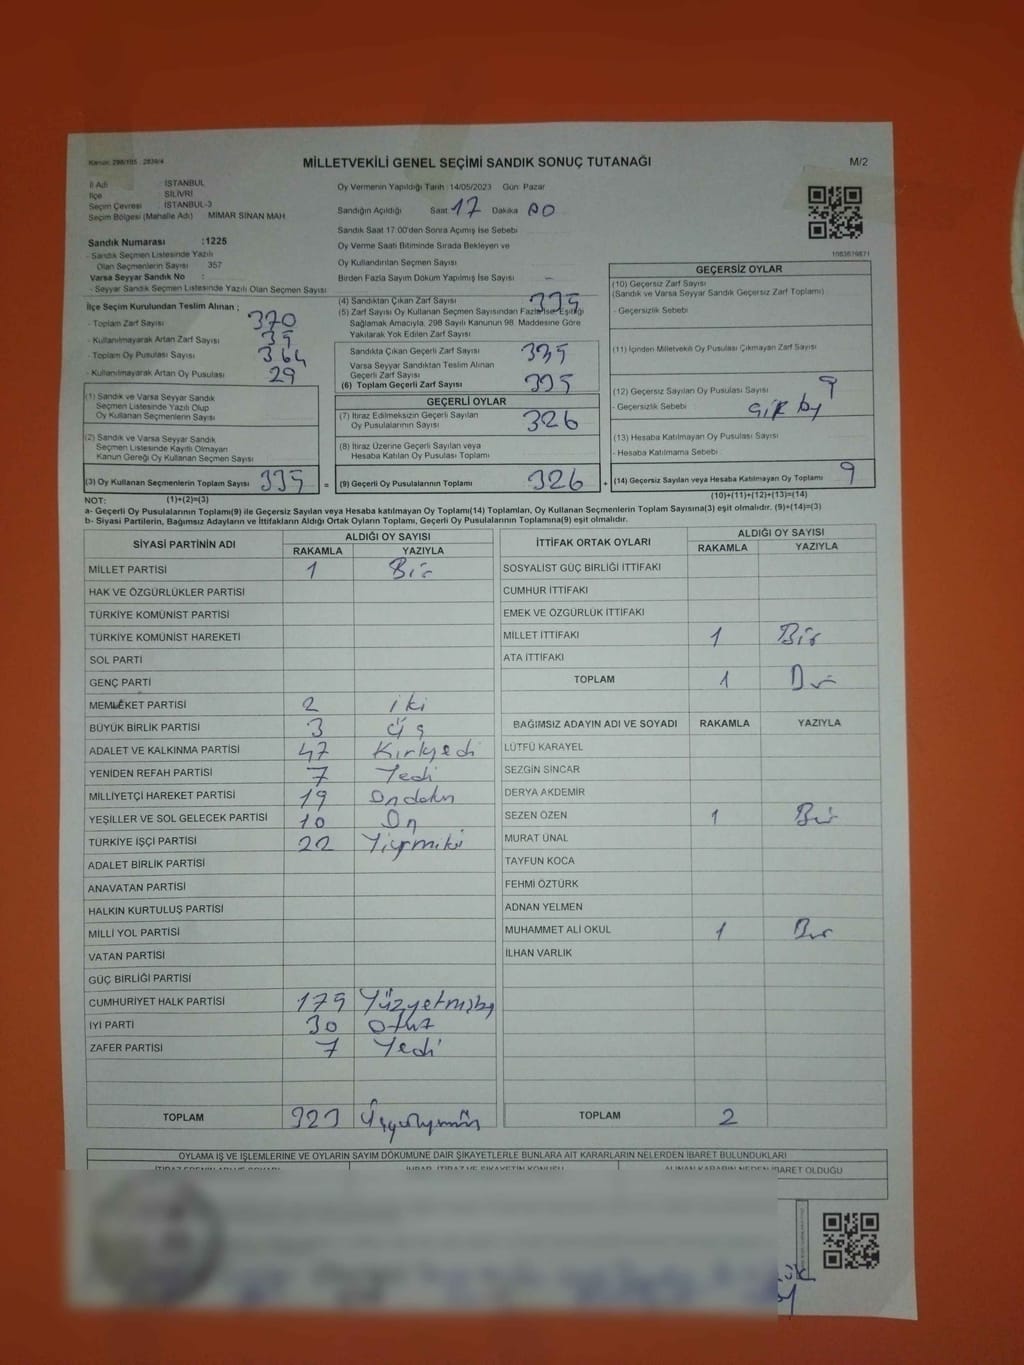 Kanun: 298/105 , 2839/4
MİLLETVEKİLİ GENEL SEÇİMİ SANDIK SONUÇ TUTANAĞI
M/2
İl Adı İSTANBUL
İlçe SİLİVRİ
Seçim Çevresi İSTANBUL-3
Seçim Bölgesi (Mahalle Adı) MİMAR SİNAN MAH.
Sandık Numarası :1225
- Sandık Seçmen Listesinde Yazılı
Olan Seçmenlerin Sayısı 357
Varsa Seyyar Sandık No :
- Seyyar Sandık Seçmen Listesinde Yazılı Olan Seçmen Sayısı
Oy Vermenin Yapıldığı Tarih :14/05/2023 Gün: Pazar
Sandığın Açıldığı Saat 17 Dakika 00
Sandık Saat 17:00'den Sonra Açımış İse Sebebi
Oy Verme Saati Bitiminde Sırada Bekleyen ve
Oy Kullandırılan Seçmen Sayısı
Birden Fazla Sayım Döküm Yapılmış İse Sayısı –
1083679871
İlçe Seçim Kurulundan Teslim Alınan ;
- Toplam Zarf Sayısı 370
- Kullanılmayarak Artan Zarf Sayısı 35
- Toplam Oy Pusulası Sayısı 364
- Kullanılmayarak Artan Oy Pusulası 29
(1) Sandık ve Varsa Seyyar Sandık
Seçmen Listesinde Yazılı Olup
Oy Kullanan Seçmenlerin Sayısı
(2) Sandık ve Varsa Seyyar Sandık
Seçmen Listesinde Kayıtlı Olmayan
Kanun Gereği Oy Kullanan Seçmen Sayısı
(3) Oy Kullanan Seçmenlerin Toplam Sayısı 335 =
(4) Sandıktan Çıkan Zarf Sayısı 335
(5) Zarf Sayısı Oy Kullanan Seçmen Sayısından Fazla İse, Eşitliği
Sağlamak Amacıyla, 298 Sayılı Kanunun 98. Maddesine Göre
Yakılarak Yok Edilen Zarf Sayısı
Sandıkta Çıkan Geçerli Zarf Sayısı 335
Varsa Seyyar Sandıktan Teslim Alınan
Geçerli Zarf Sayısı
(6) Toplam Geçerli Zarf Sayısı 335
GEÇERLİ OYLAR
(7) İtiraz Edilmeksizin Geçerli Sayılan
Oy Pusulalarının Sayısı 326
(8) İtiraz Üzerine Geçerli Sayılan veya
Hesaba Katılan Oy Pusulası Toplamı
(9) Geçerli Oy Pusulalarının Toplamı 326 +
GEÇERSİZ OYLAR
(10) Geçersiz Zarf Sayısı
(Sandık ve Varsa Seyyar Sandık Geçersiz Zarf Toplamı)
- Geçersizlik Sebebi
(11) İçinden Milletvekili Oy Pusulası Çıkmayan Zarf Sayısı
(12) Geçersiz Sayılan Oy Pusulası Sayısı 9
- Geçersizlik Sebebi
(13) Hesaba Katılmayan Oy Pusulası Sayısı
- Hesaba Katılmama Sebebi
(14) Geçersiz Sayılan veya Hesaba Katılmayan Oy Toplamı 9
NOT: (1)+(2)=(3)
(10)+(11)+(12)+(13)=(14)
a- Geçerli Oy Pusulalarının Toplamı(9) ile Geçersiz Sayılan veya Hesaba katılmayan Oy Toplamı(14) Toplamları, Oy Kullanan Seçmenlerin Toplam Sayısına(3) eşit olmalıdır. (9)+(14)=(3)
b- Siyasi Partilerin, Bağımsız Adayların ve İttifakların Aldığı Ortak Oyların Toplamı, Geçerli Oy Pusulalarının Toplamına(9) eşit olmalıdır.
SİYASİ PARTİNİN ADI ALDIĞI OY SAYISI
RAKAMLA YAZIYLA
MİLLET PARTİSİ 1 Bir
HAK VE ÖZGÜRLÜKLER PARTİSİ
TÜRKİYE KOMÜNİST PARTİSİ
TÜRKİYE KOMÜNİST HAREKETİ
SOL PARTİ
GENÇ PARTİ
MEMLEKET PARTİSİ 2 iki
BÜYÜK BİRLİK PARTİSİ 3 üç
ADALET VE KALKINMA PARTİSİ 47 Kırkyedi
YENİDEN REFAH PARTİSİ 7 Yedi
MİLLİYETÇİ HAREKET PARTİSİ 19 Ondokuz
YEŞİLLER VE SOL GELECEK PARTİSİ 10 On
TÜRKİYE İŞÇİ PARTİSİ 22 Yirmiiki
ADALET BİRLİK PARTİSİ
ANAVATAN PARTİSİ
HALKIN KURTULUŞ PARTİSİ
MİLLİ YOL PARTİSİ
VATAN PARTİSİ
GÜÇ BİRLİĞİ PARTİSİ
CUMHURİYET HALK PARTİSİ 175 Yüzyetmişbeş
İYİ PARTİ 30 Otuz
ZAFER PARTİSİ 7 Yedi
TOPLAM 323 Üçyüzyirmiüç
İTTİFAK ORTAK OYLARI ALDIĞI OY SAYISI
RAKAMLA YAZIYLA
SOSYALİST GÜÇ BİRLİĞİ İTTİFAKI
CUMHUR İTTİFAKI
EMEK VE ÖZGÜRLÜK İTTİFAKI
MİLLET İTTİFAKI 1 Bir
ATA İTTİFAKI
TOPLAM 1 Bir
BAĞIMSIZ ADAYIN ADI VE SOYADI RAKAMLA YAZIYLA
LÜTFÜ KARAYEL
SEZGİN SİNCAR
DERYA AKDEMİR
SEZEN ÖZEN 1 Bir
MURAT ÜNAL
TAYFUN KOCA
FEHMİ ÖZTÜRK
ADNAN YELMEN
MUHAMMET ALİ OKUL 1 Bir
İLHAN VARLIK
TOPLAM 2
OYLAMA İŞ VE İŞLEMLERİNE VE OYLARIN SAYIM DÖKÜMÜNE DAİR ŞİKAYETLERLE BUNLARA AİT KARARLARIN NELERDEN İBARET BULUNDUKLARI
İHBAR, İTİRAZ VE ŞİKAYETİN KONUSU ALINAN KARARIN NEDEN İBARET OLDUĞU